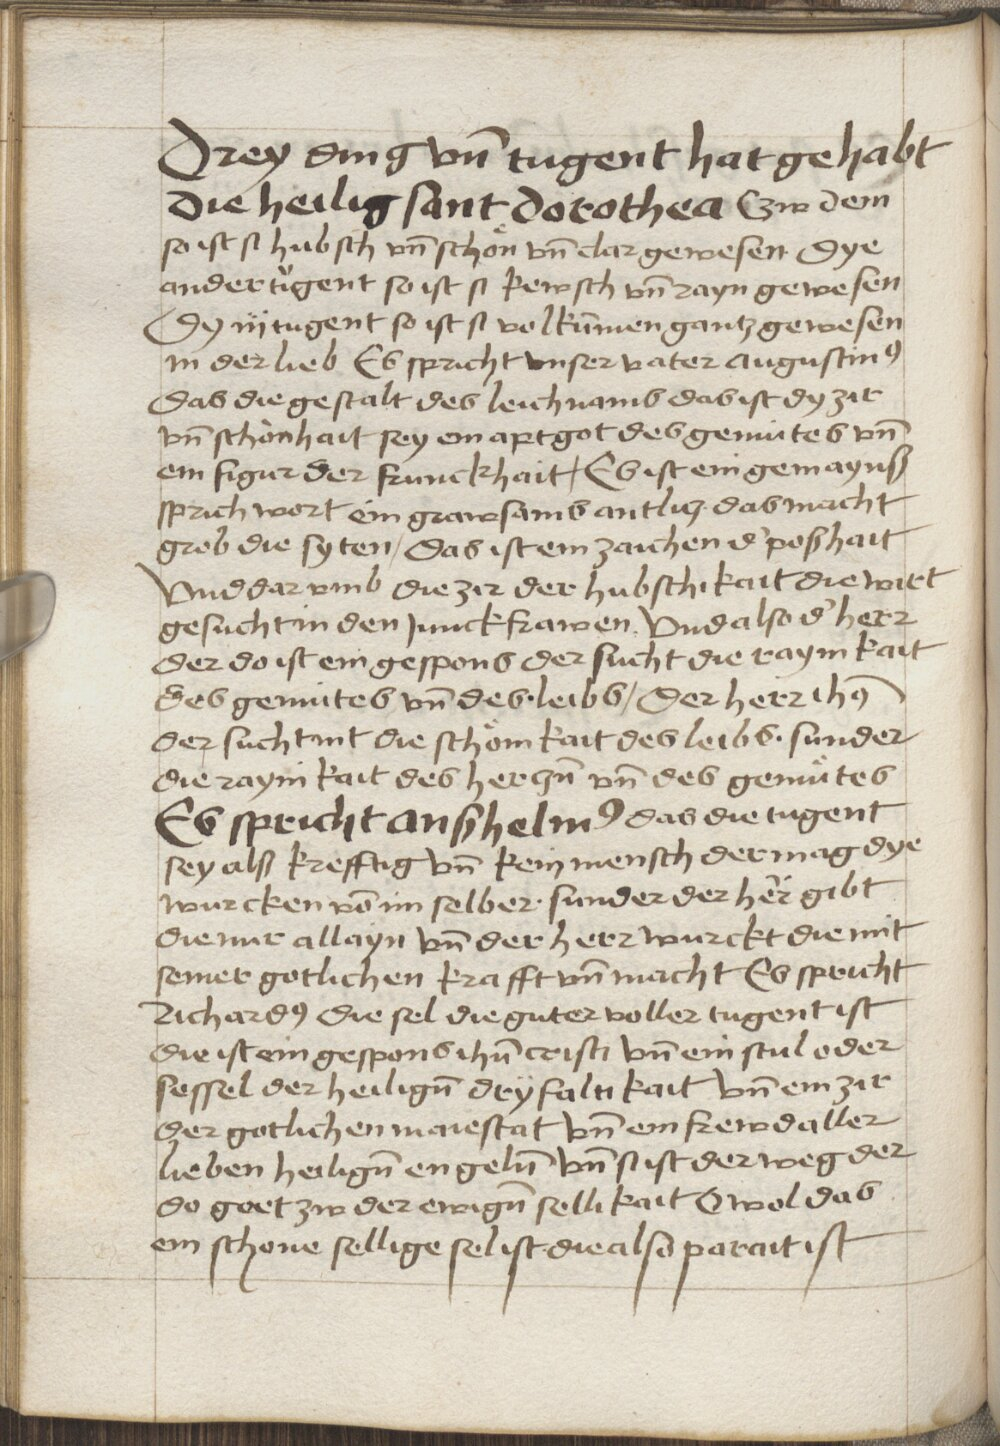 Drey ding vn̄ tugent hat gehabt
die heilig sant dorothea Czw dem
so ist si hubsch vn̄ schön vn̄ clar gewesen Dye
ander tugent so ist si kewsch vn̄ rayn gewesen
Dy iij tugent so ist si volkūmen gantz gewesen
in der lieb Es spricht vnser vater augustinꝯ
das die gestalt des leichnams das ist dy zir
vn̄ schönhait sey ein aptgot des gemütes vn̄
ein figur der frunckhait / Es ist ein gemaynß
sprich wort ein grawsams antlicz das macht
grob die syten / das ist ein zaichen d' poßhait
Vnd dar vmb die zir der hubschikait die wirt
gesucht in den Junckfrawen. Vnd also d' herr
der do ist ein gespons der sucht die raynikait
des gemütes vn̄ des leibs / Der herr ihꝯ
der sucht nit die schönikait des leibs. sunder
die raynikait des herczn̄ vn̄ des gemütes
Es spricht anßhelmꝯ das die tugent
sey alß krefftig vn̄ kein mensch der mag dye
wurcken vō im selber. sunder der her̄ gibt
die nur allayn vn̄ der herr wurckt die mit
seiner gotlichen krafft vn̄ macht Es spricht
Richardꝯ die sel die guter voller tugent ist
die ist ein gespons ihū cristi vn̄ ein stul oder
sessel der heilign̄ dryfaltikait vn̄ ein zir
der gotlichen maiestat vn̄ ein frewd aller
lieben heilign̄ engeln̄ vn̄ si ist der weg der
do goet zw der ewign̄ sellikait O wol das
ein schone sellige sel ist die also parait ist